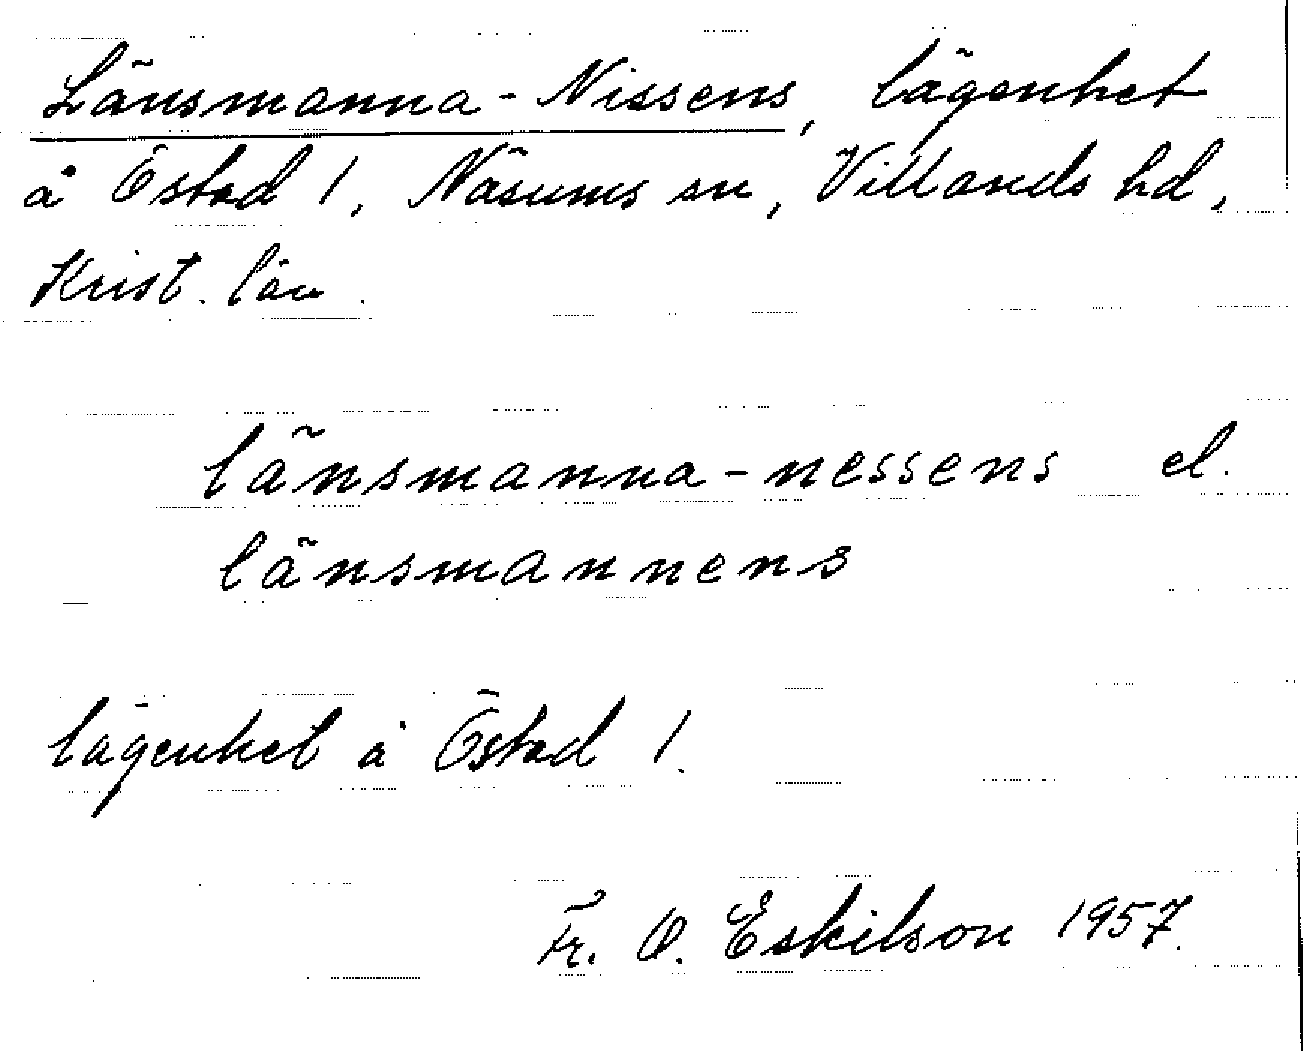 Länsmanna-Nissens, lägenhet
å Östad 1, Näsums sn, Villands hd,
Krist. län.
länsmanna-nessens el.
länsmannens
lägenhet å Östad 1.
Fr. O. Eskilson 1957.